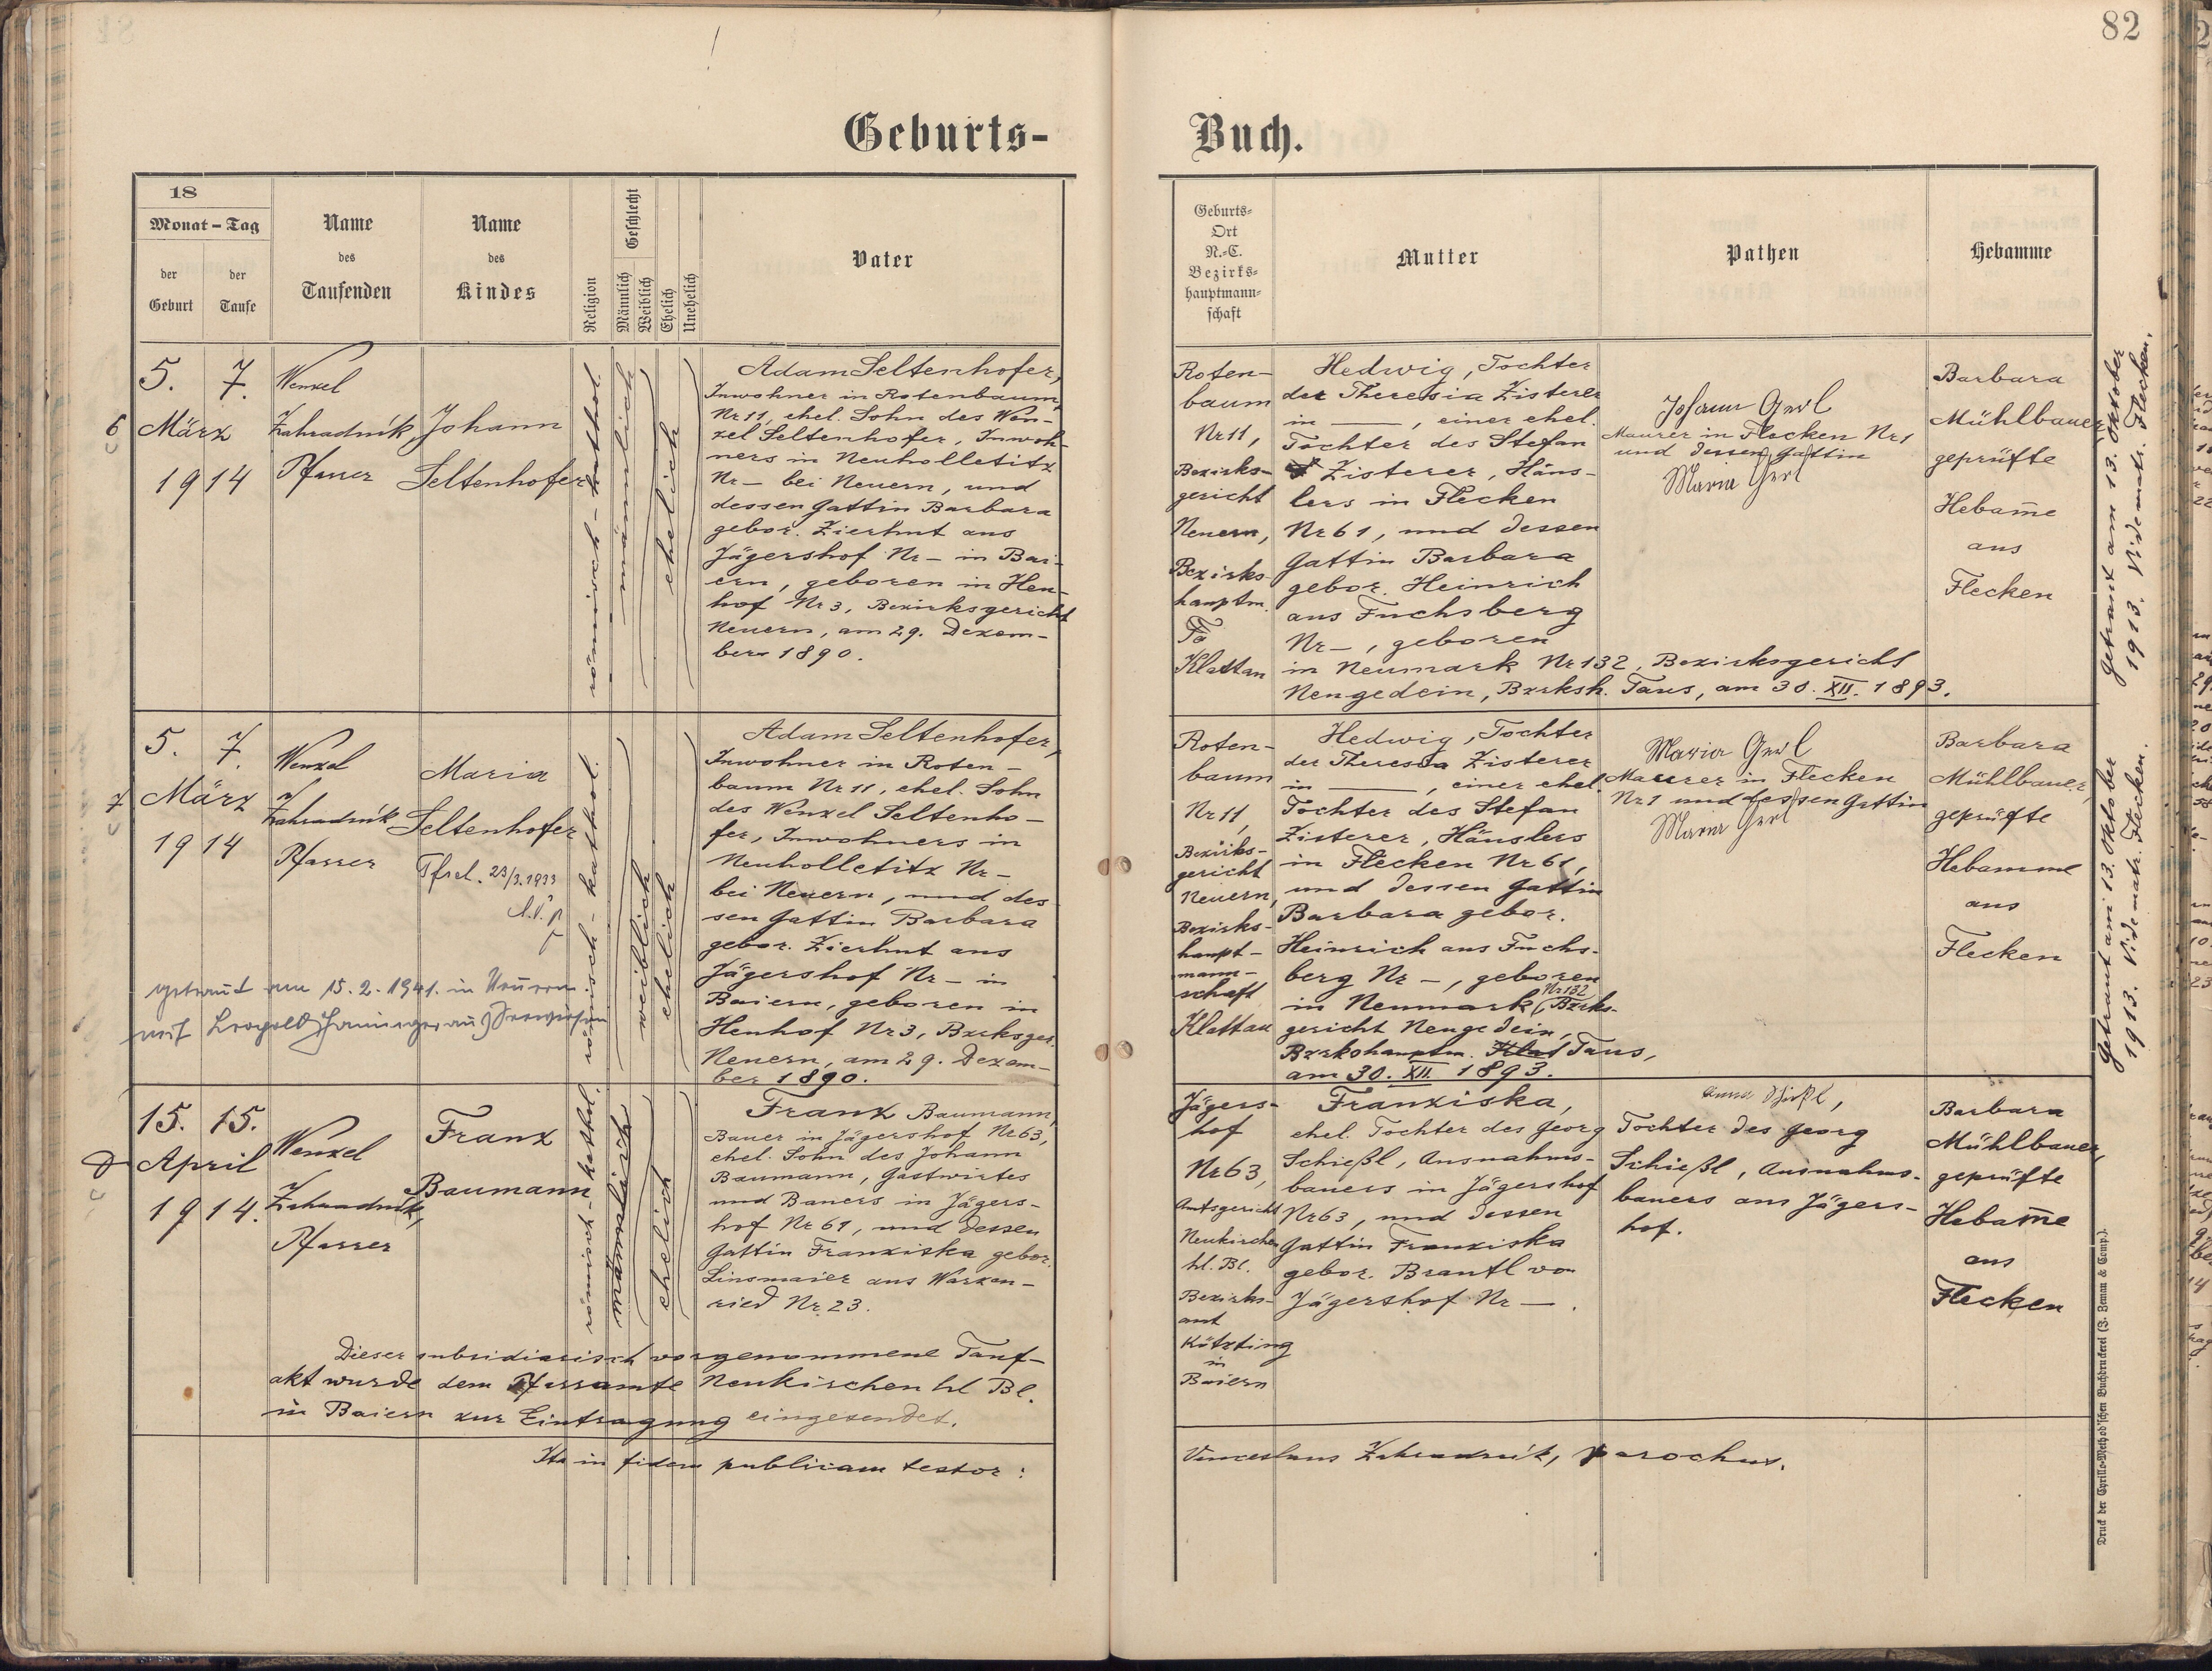 82
Geburts-
Buch.
18
Monat - Tag
der Geburt
der Taufe
Name des Taufenden
Name des Kindes
Religion
Geschlecht
Männlich
Weiblich
Ehelich
Unehelich
Vater
Geburts-
Ort
N.-C.
Bezirks-
hauptmann-
schaft
Mutter
Pathen
Hebamme
6
5. 7.
März
1914
Wenzel
Zahradník,
Pfarrer
Johann
Seltenhofer
römisch-kathol.
männlich
ehelich
Adam Seltenhofer,
Inwohner in Rotenbaum
Nr 11, ehel. Sohn des Wen-
zel Seltenhofer, Inwoh-
ners in Neuholletitz
Nr — bei Neuern, und
dessen Gattin Barbara
gebor. Zierhut aus
Jägershof Nr — in Bai-
ern, geboren in Hen-
hof Nr 3, Bezirksgericht
Neuern, am 29. Dezem-
ber 1890.
Roten-
baum
Nr 11,
Bezirks-
gericht
Neuern,
Bezirks-
hauptm.
Klattau
Hedwig, Tochter
der Theresia Zisterer
in —, einer ehel.
Tochter des Stefan
Zisterer, Häus-
lers in Flecken
Nr 61, und dessen
Gattin Barbara
gebor. Heinrich
aus Fuchsberg
Nr —, geboren
in Neumark Nr 132, Bezirksgericht
Neugedein, Bzrksh. Taus, am 30. XII. 1893.
Johann Gerl
Maurer in Flecken Nr 1
und dessen Gattin
Maria Gerl
Barbara
Mühlbauer,
geprüfte
Hebam̄e
aus
Flecken
Getraut am 13. Oktober
1913. Vide matr. Flecken.
7
5. 7.
März
1914
Wenzel
Zahradník
Pfarrer
Maria
Seltenhofer
23/3. 1933
römisch-kathol.
weiblich
ehelich
getraut am 15. 2. 1941. in Neuern
mit Leopold
Adam Seltenhofer,
Inwohner in Roten-
baum Nr 11, ehel. Sohn
des Wenzel Seltenho-
fer, Inwohners in
Neuholletitz Nr —
bei Neuern, und des
sen Gattin Barbara
gebor. Zierhut aus
Jägershof Nr — in
Baiern, geboren in
Henhof Nr 3, Bzrksger.
Neuern, am 29. Dezem-
ber 1890.
Roten-
baum
Nr 11,
Bezirks-
gericht
Neuern,
Bezirks-
haupt-
mann-
schaft
Klattau
Hedwig, Tochter
der Theresia Zisterer
in —, einer ehel.
Tochter des Stefan
Zisterer, Häuslers
in Flecken Nr 61,
und dessen Gattin
Barbara gebor.
Heinrich aus Fuchs-
berg Nr —, geboren
in Neumark (Nr 132 Bzrks-
gericht Neugedein,
Bzrkshauptm. Klat Taus,
am 30. XII. 1893.
Maria Gerl
Maurer in Flecken
Nr 1 und dessen Gattin
Maria Gerl
Barbara
Mühlbauer,
geprüfte
Hebamme
aus
Flecken
Getraut am 13. Oktober
1913. Vide matr. Flecken.
15. 15.
April
1914.
Wenzel
Zahradník,
Pfarrer
Franz
Baumann
römisch-kathol.
männlich
ehelich
Franz Baumann,
Bauer in Jägershof Nr 63,
ehel. Sohn des Johann
Baumann, Gastwirtes
und Bauers in Jägers-
hof Nr 61, und dessen
Gattin Franziska gebor.
Linsmaier aus Warzen-
ried Nr 23.
Jägers-
hof
Nr 63,
Amtsgericht
Neukirchen
hl. Bl.
Bezirks-
amt
Kötzting
in
Baiern
Franziska,
ehel. Tochter des Georg
Schießl, Ausnahms-
bauers in Jägershof
Nr 63, und dessen
Gattin Franziska
gebor. Brantl von
Jägershof Nr —.
Anna Schießl,
Tochter des Georg
Schießl, Ausnahms-
bauers aus Jägers-
hof.
Barbara
Mühlbauer,
geprüfte
Hebam̄e
aus
Flecken
Dieser subsidiarisch vorgenommene Tauf-
akt wurde dem Pfarramte Neukirchen hl Bl.
in Baiern zur Eintragung eingesendet.
Ita in fidem publicam testor:
Venceslaus Zahradník, parochus.
Druck der Cyrillo-Method'schen Buchdruckerei (J. Zeman & Comp.).